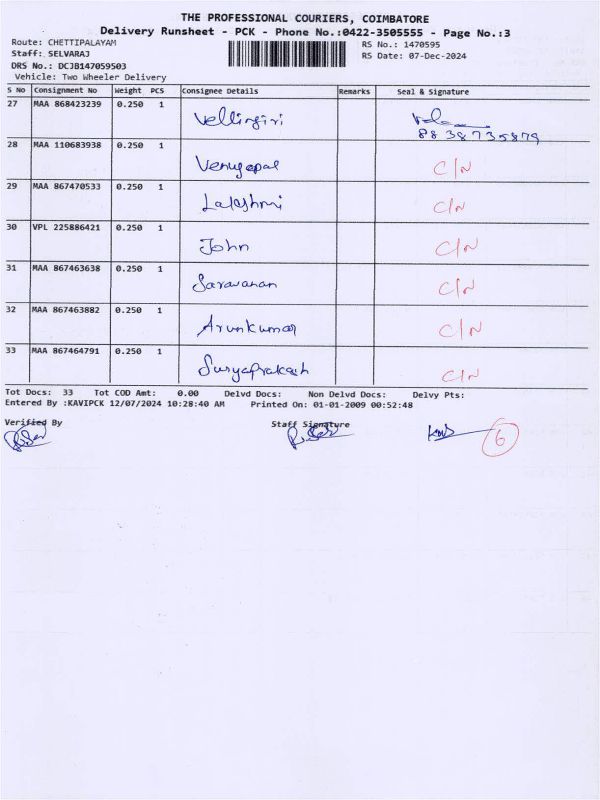 THE PROFESSIONAL COURIERS, COIMBATORE
Delivery Runsheet - PCK - Phone No.:0422-3505555 - Page No.:3
Route: CHETTIPALAYAM RS No.: 1470595
Staff: SELVARAJ RS Date: 07-Dec-2024
DRS No.: DCJB147059503
Vehicle: Two Wheeler Delivery
S No Consignment No Weight PCS Consignee Details Remarks Seal & Signature
27 MAA 868423239 0.250 1 Vellingiri
8838735879
28 MAA 110683938 0.250 1 Venugopal C/N
29 MAA 867470533 0.250 1 Lakshmi C/N
30 VPL 225886421 0.250 1 John C/N
31 MAA 867463638 0.250 1 Saravanan C/N
32 MAA 867463882 0.250 1 Arunkumar C/N
33 MAA 867464791 0.250 1 Suryaprakash C/N
Tot Docs: 33 Tot COD Amt: 0.00 Delvd Docs: Non Delvd Docs: Delvy Pts:
Entered By :KAVIPCK 12/07/2024 10:28:40 AM Printed On: 01-01-2009 00:52:48
Verified By Staff Signature
6